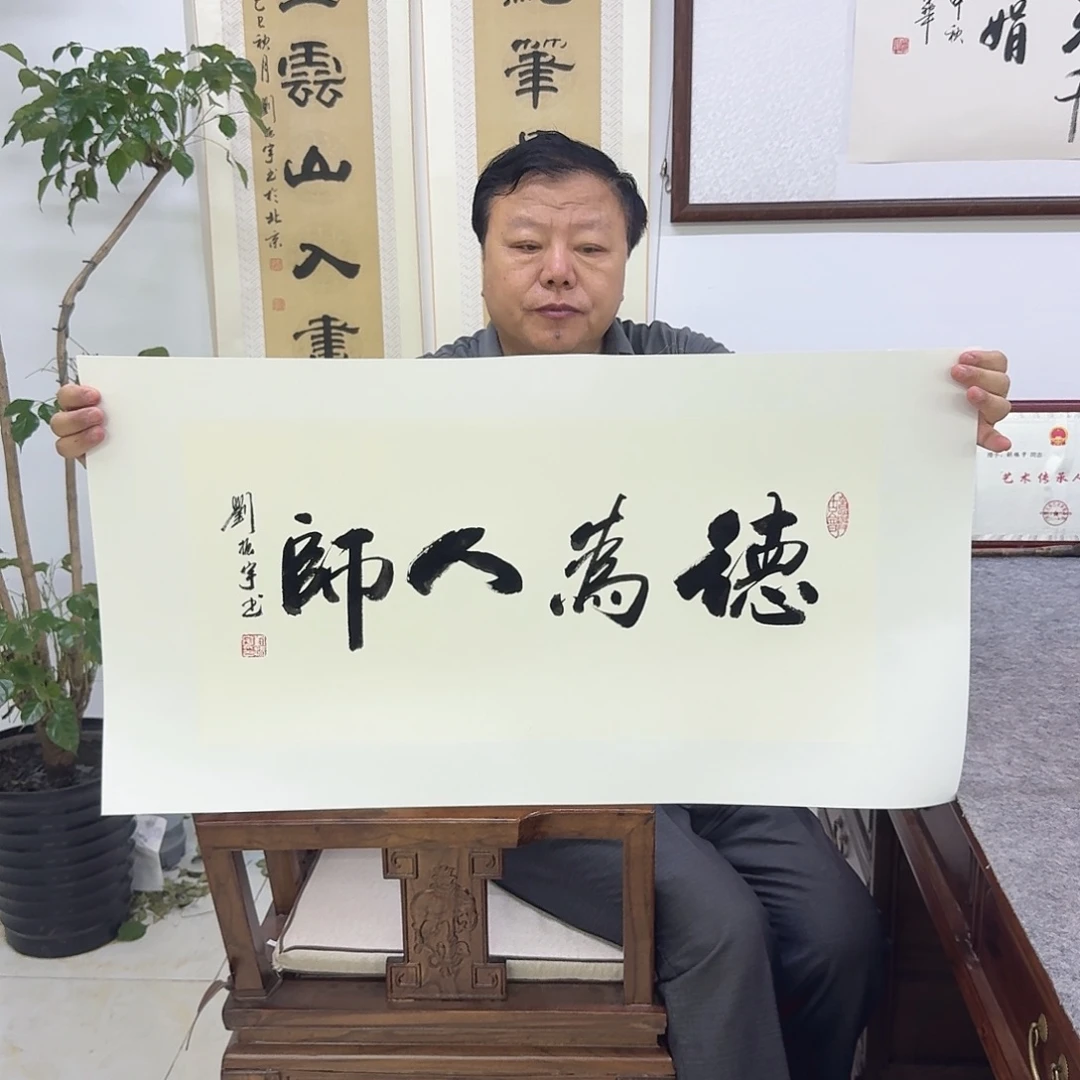 德為人師
劉振宇书
雲山入畫
己巳秋月劉振宇书於北京
筆
娟
艺术传承人